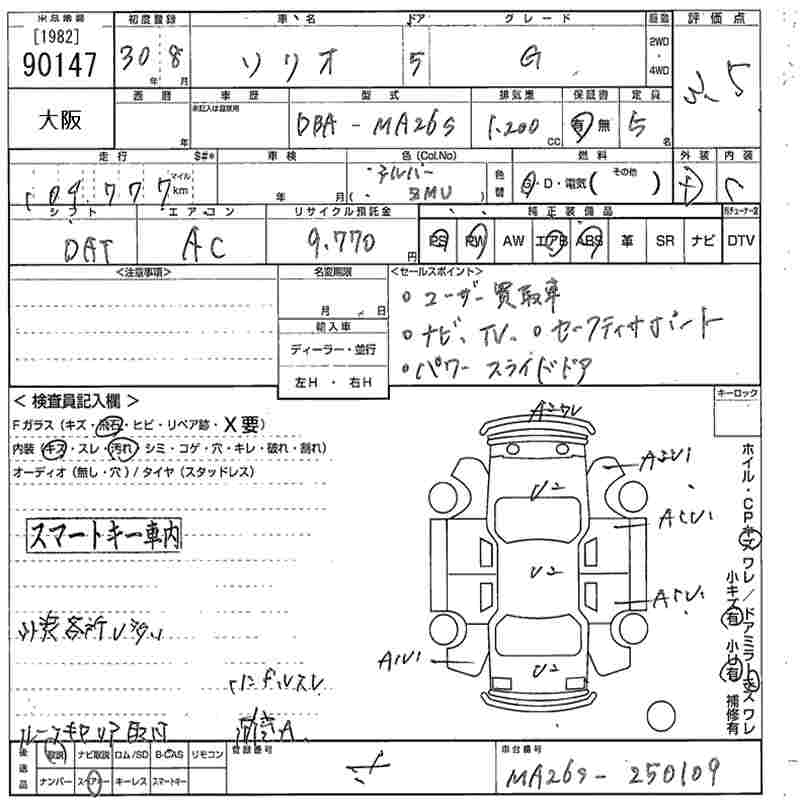 [1982]
90147
大阪
初度登録
30年 8月
車名
ソリオ
ドア
5
グレード
G
2WD
・
4WD
評価点
3.5
西暦
年
車歴
未記入は自家用
型式
DBA - MA26S
排気量
1.200 cc
保証書
有 無
定員
5名
走行
S#*
マイル
km
車検
年 月
色 (Col.No)
シルバー
( ZMU )
色替
燃料
G・D・電気( その他 )
外装
内装
シフト
DAT
エアコン
AC
リサイクル預託金
9.770円
純正装備品
PS PW AW エアB ABS 革 SR ナビ DTV
<注意事項>
名変期限
月 日
輸入車
ディーラー・並行
左H ・ 右H
<セールスポイント>
○ ユーザー買取車
○ ナビ、TV、○ セーフティサポート
○ パワースライドドア
< 検査員記入欄 >
Fガラス (キズ・飛石・ヒビ・リペア跡・X要)
内装 (キズ・スレ・汚れ・シミ・コゲ・穴・キレ・破れ・割れ)
オーディオ (無し・穴) / タイヤ (スタッドレス)
スマートキー車内
キーロック
A2ワレ
U2
A2U1
A1U1
U2
A1U1
A1U1
U2
ホイル・CPキズ ワレ / ドアミラーキズ ワレ
小キズ有 小U有 補修有
外装各所
後送品
取説 ナビ取説 ロム/SD B-CAS リモコン
ナンバー スペアキー キーレス スマートキー
登録番号
車台番号
MA26S - 250109